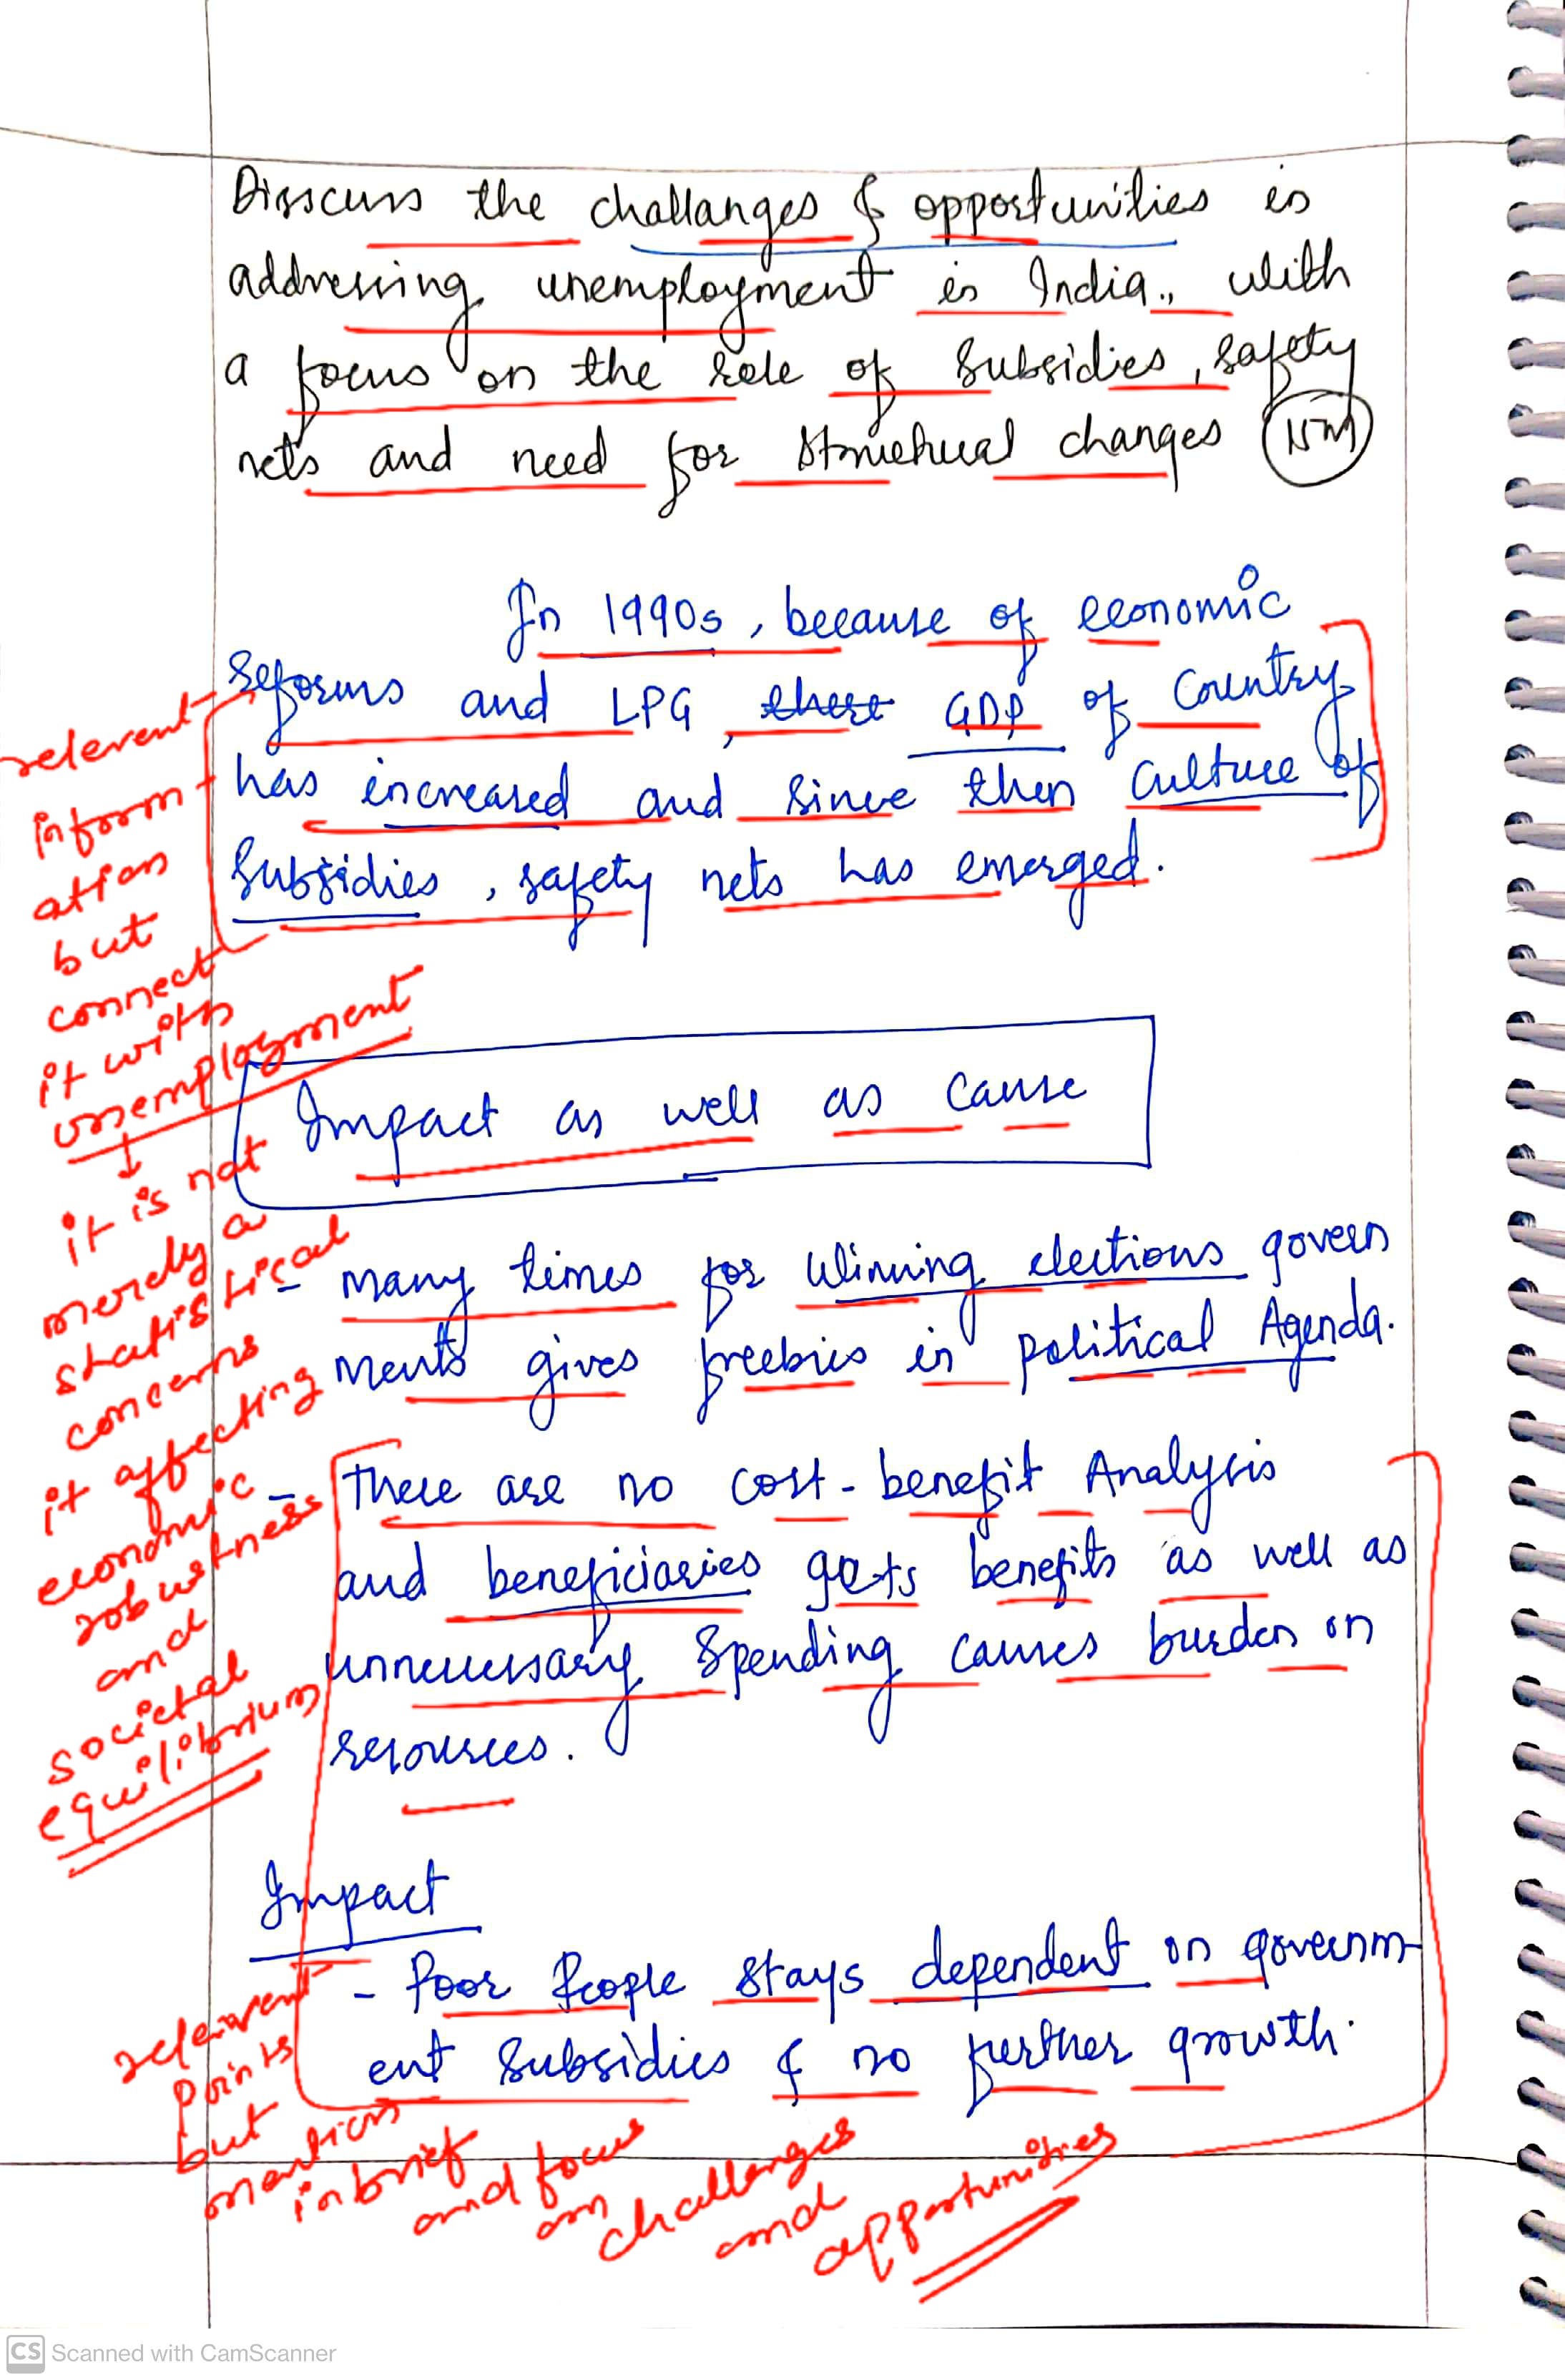 Disscuss the challanges & opportunities in
addressing unemployment in India., with
a focus on the role of Subsidies, safety
nets and need for structural changes (15M)
In 1990s, because of economic
reforms and LPG, there GDP of Country
has increased and since then culture of
Subsidies, safety nets has emerged.
relevent
inform
ation
but
connect
it with
unemployment
↓
it is not
merely a
statistical
concerns
it affecting
economic
robustness
and
societal
equilibrium
Impact as well as cause
- many times for winning elections govern
ments gives freebies in political Agenda.
- There are no cost-benefit Analysis
and beneficiaries gets benefits as well as
unnecessary spending causes burden on
resources.
Impact
- Poor People stays dependent on governm
ent Subsidies & no further growth.
relevant
points
but
mention
in brief
and focus
on
challenges
and
opportunities
CS Scanned with CamScanner